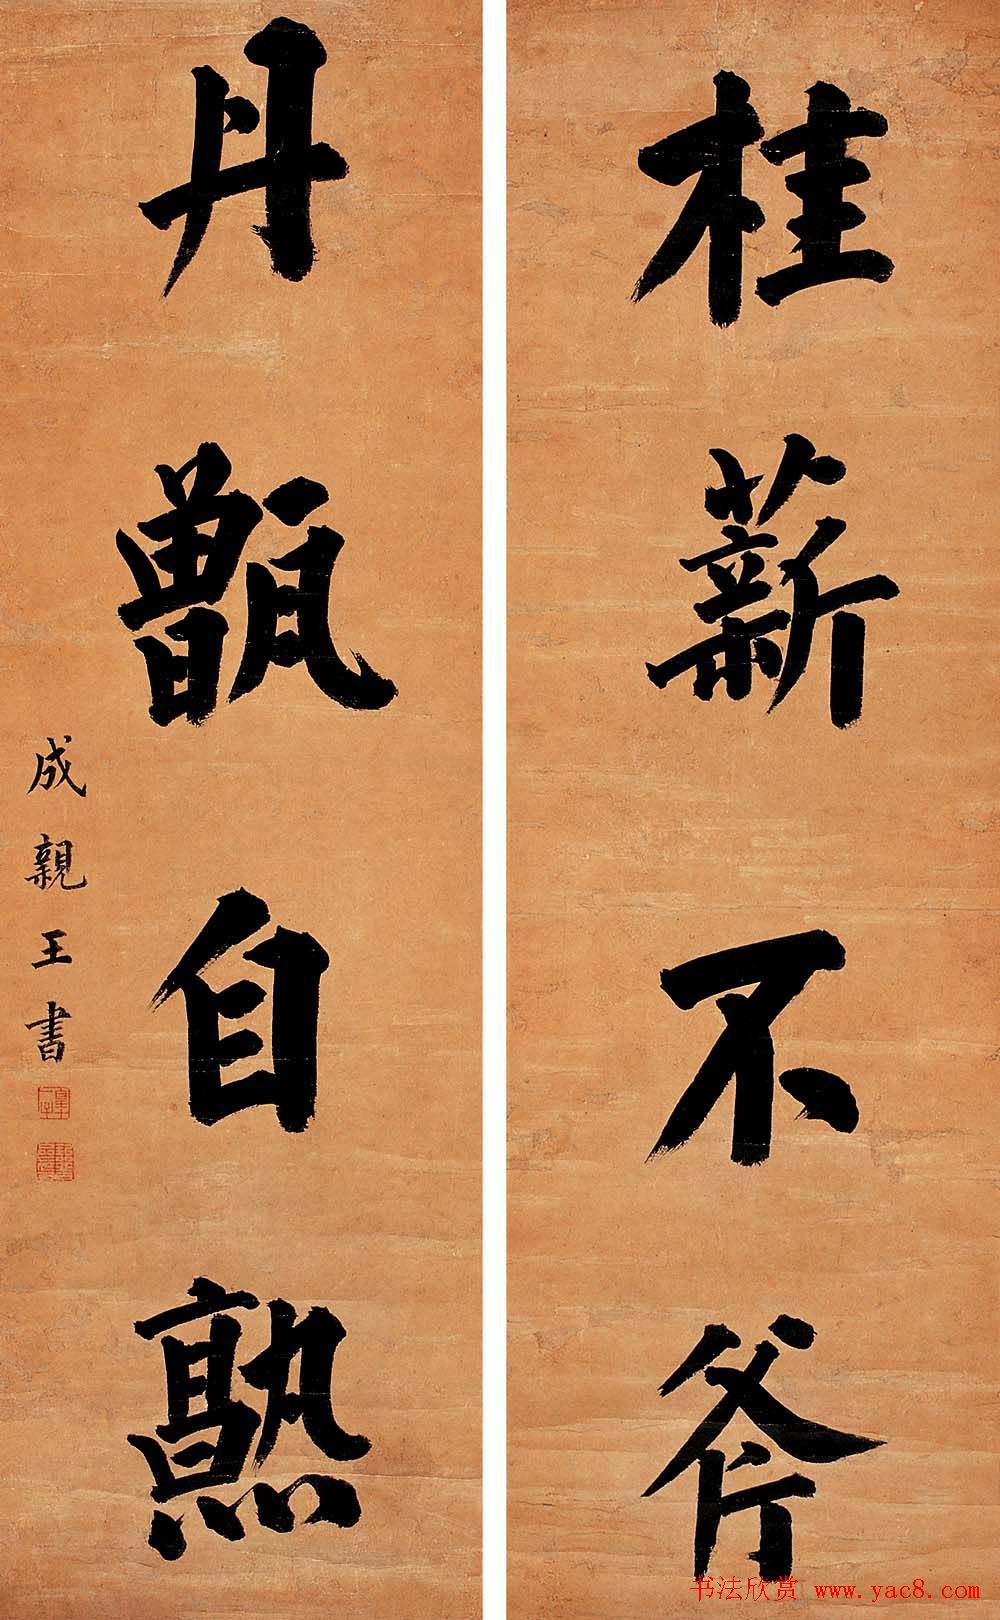 桂薪不斧
丹甑自熟
成親王書
书法欣赏 www.yac8.com